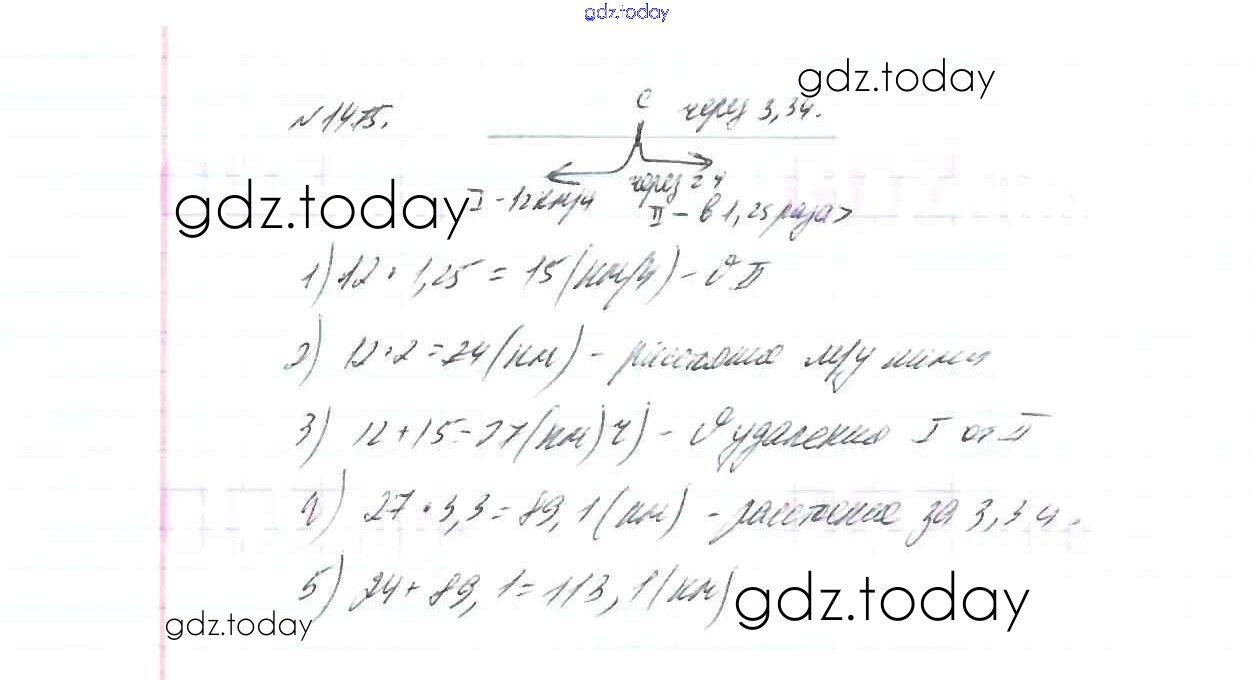 gdz.today
gdz.today
№ 1475.
C через 3,3ч.
через 2 ч
gdz.today
I - 12км/ч II - в 1,25 раза >
1) 12 · 1,25 = 15 (км/ч) - υ II
2) 12 · 2 = 24 (км) - расстояние м/у ними
3) 12 + 15 = 27 (км/ч) - υ удаления I от II
4) 27 · 3,3 = 89,1 (км) - расстояние за 3,3 ч.
5) 24 + 89,1 = 113,1 (км)
gdz.today
gdz.today